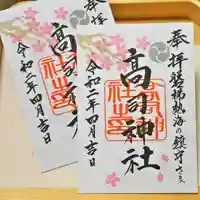 奉拝 磐梯熱海の鎮守さま
高司神社
令和二年四月吉日
奉拝
高司神社
令和二年四月吉日